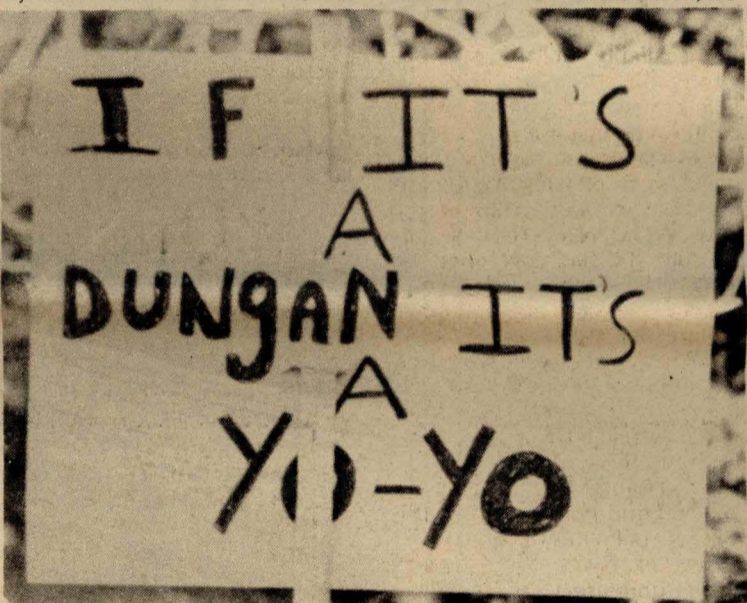 IF IT'S
A
DUNgAN IT'S
A
YO-YO